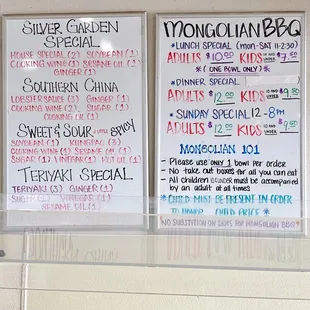 SILVER GARDEN
SPECIAL
HOUSE SPECIAL (2) SOYBEAN (1)
COOKING WINE (1) SESAME OIL (1)
GINGER (1)
SOUTHERN CHINA
LOBSTER SAUCE (3) GINGER (1)
COOKING WINE (2) SUGAR (1)
COOKING OIL (1)
SWEET & SOUR SPICY
SOYBEAN (1) KUNGPAO (3)
COOKING WINE (1) SESAME OIL (1)
SUGAR (1) VINEGAR (1) HOT OIL (1)
TERIYAKI SPECIAL
TERIYAKI (3) GINGER (1)
VINEGAR (1)
SESAME OIL (1)
MONGOLIAN BBQ
*LUNCH SPECIAL (MON-SAT 11-2:30)
ADULTS $10.00 KIDS
*(ONE BOWL ONLY)*
*DINNER SPECIAL
ADULTS $12.00 KIDS
*SUNDAY SPECIAL 12-8PM
ADULTS $12.00 KIDS
MONGOLIAN 101
- PLEASE USE ONLY 1 BOWL PER ORDER
- NO TAKE OUT BOXES FOR ALL YOU CAN EAT
- ALL CHILDREN MUST BE ACCOMPANIED
BY AN ADULT AT ALL TIMES
*CHILD MUST BE PRESENT IN ORDER
TO HONOR CHILD PRICE*
NO SUBSTITUTION ON SIDES FOR MONGOLIAN BBQ